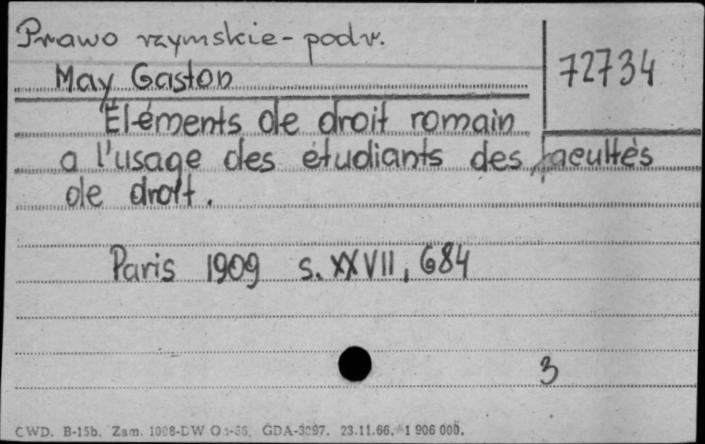 Prawo rzymskie - podr.
May Gaston
72734
Eléments de droit romain
a l'usage des étudiants des facultés
de droit.
Paris 1909 s. XXVII, 684
3
CWD. B-15b. Zam. GDA-3297. 23.11.66. 1 906 000.